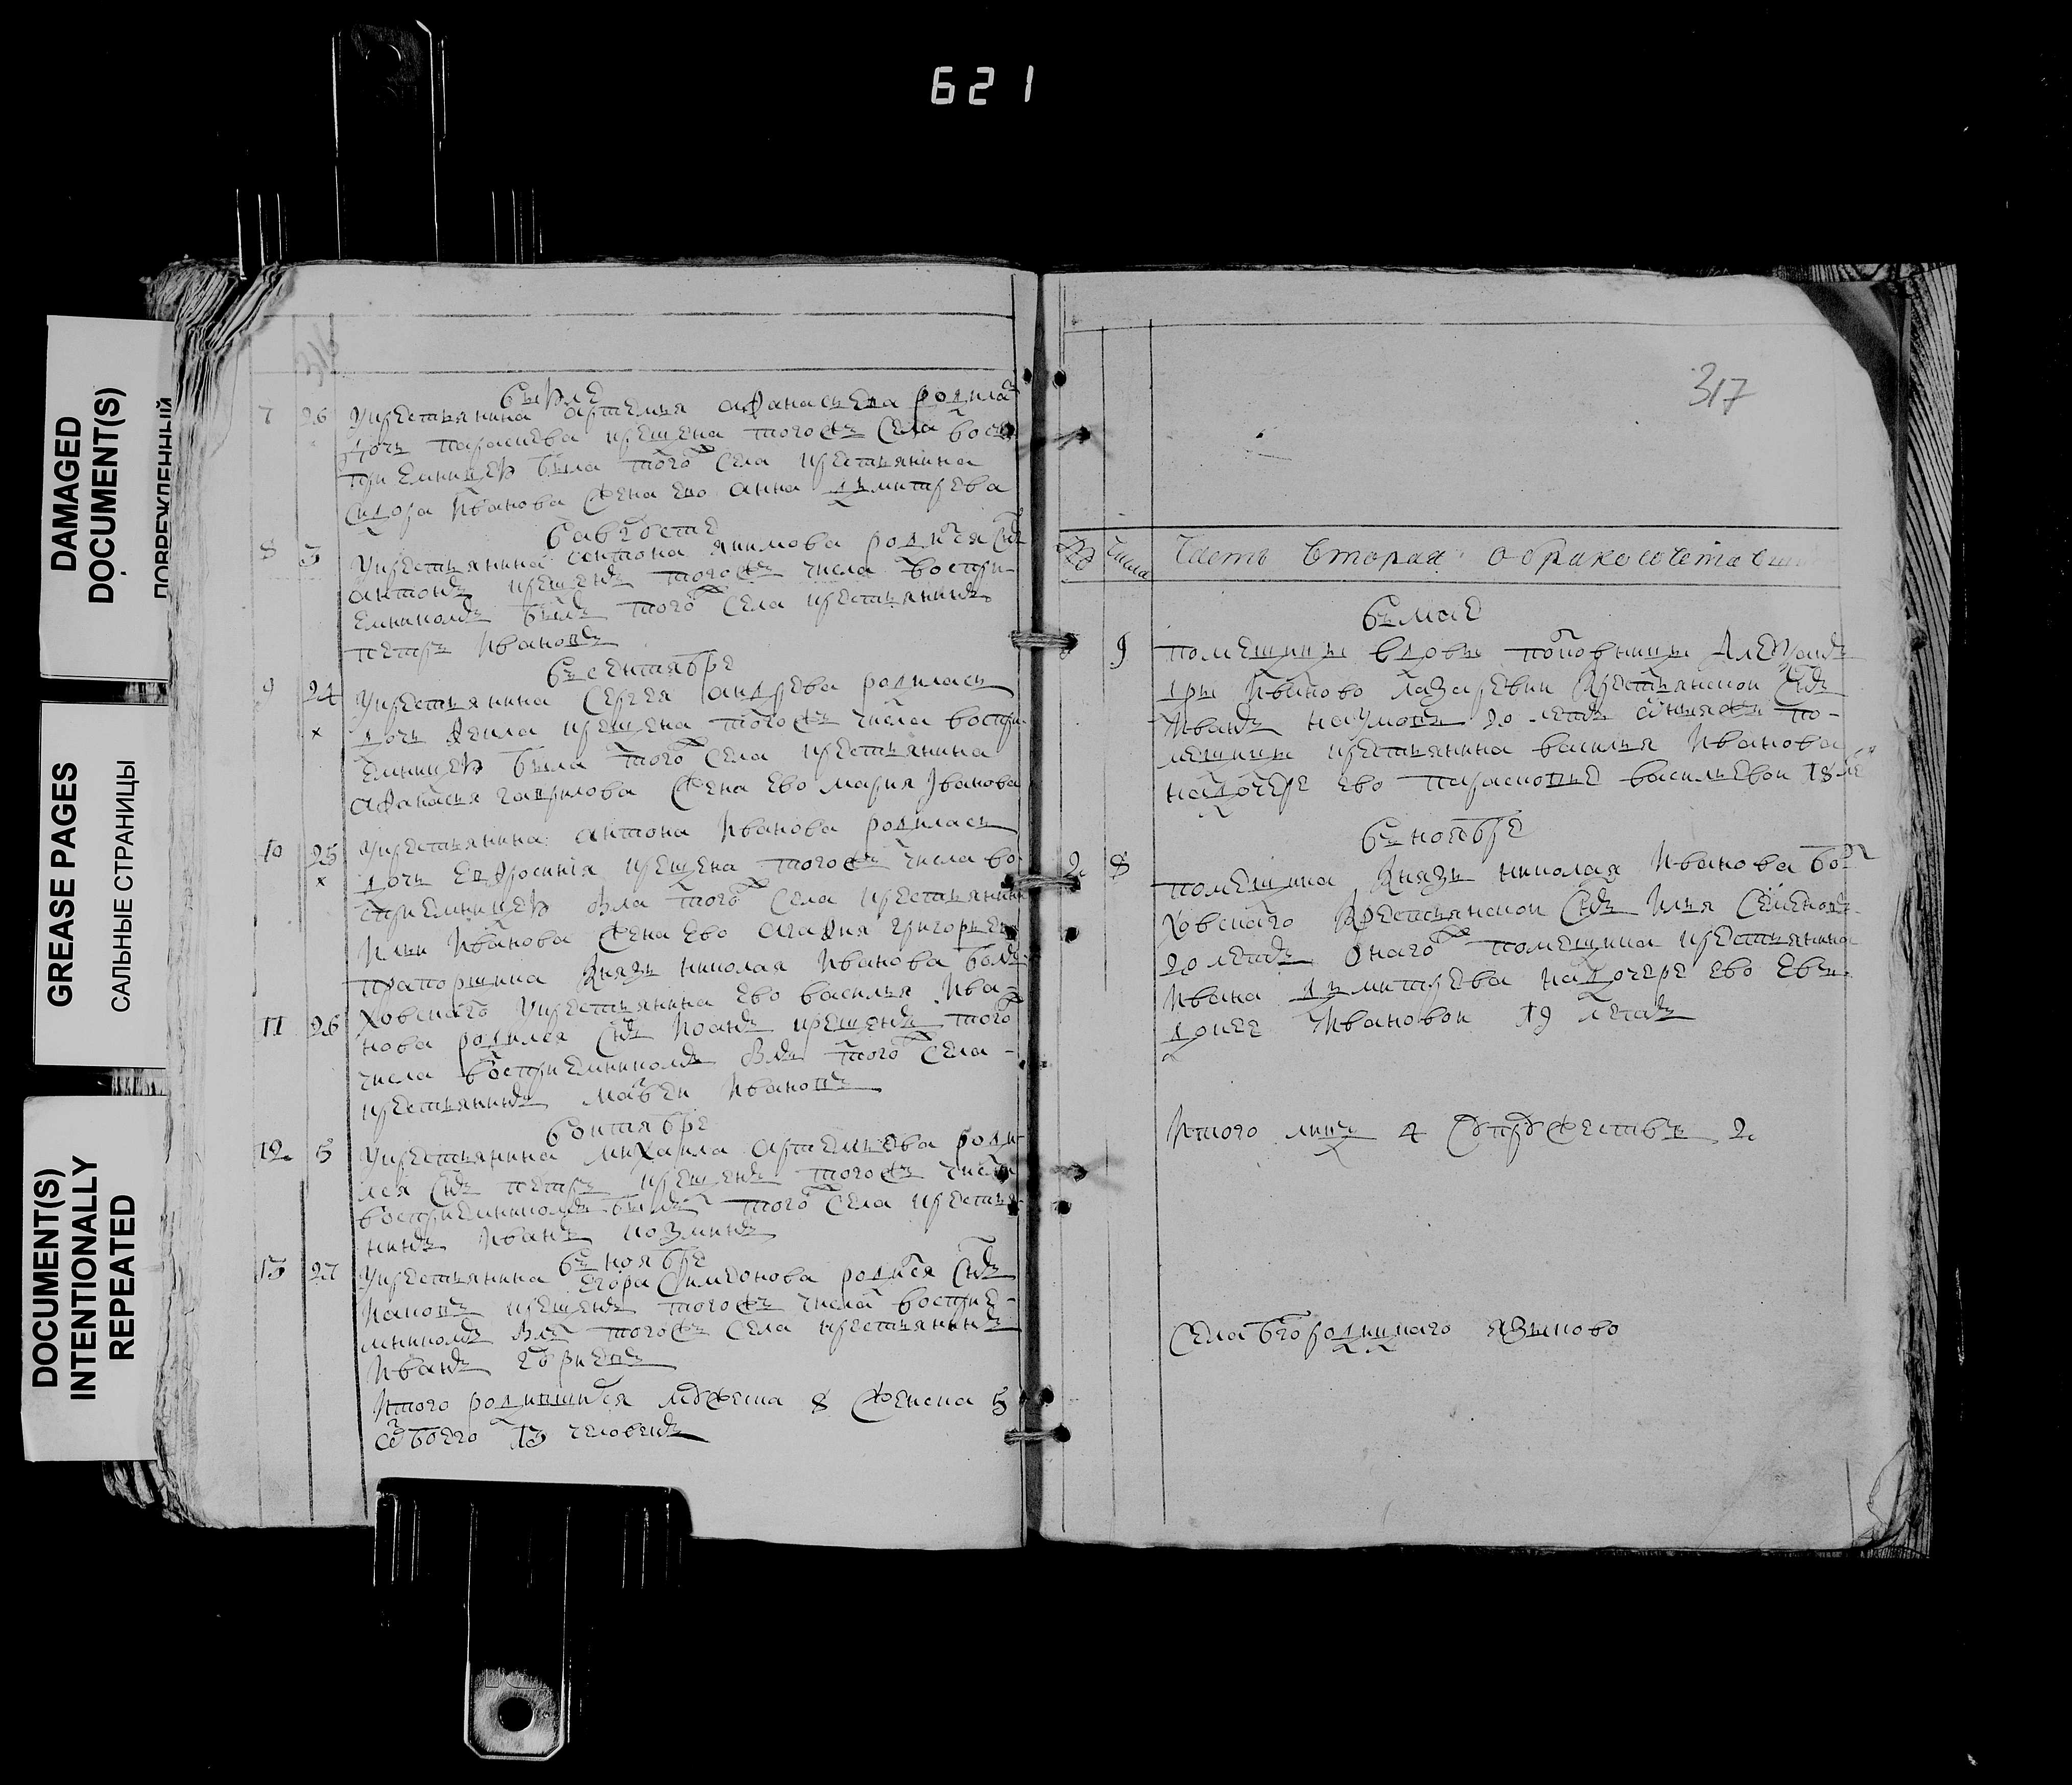 621
DAMAGED
DOCUMENT(S)
ПОВРЕЖДЕННЫЙ
GREASE PAGES
САЛЬНЫЕ СТРАНИЦЫ
DOCUMENT(S)
INTENTIONALLY
REPEATED
316
7 26 у крестьянина артемья афанасьева родила
дочь парасцева крещена того села
приемницей была того села крестьянина
сидора иванова жена ево анна дмитрева
в августе
8 3 у крестьянина антона родися снъ
антонъ крещенъ тогожъ числа востри-
емникомъ былъ того села крестьянинъ
петръ ивановъ
въ сентябре
9 24 у крестьянина сергея андрева родилась
дочь крещена тогожъ числа востри
емницей была того села крестьянина
афанасья гаврилова жена ево мария иванова
10 25 у крестьянина антона иванова родилась
дочь евфросиния крещена тогожъ числа во
стриемницей бла того села крестьянина
ильи иванова жена ево агафия григорьев
прапорщика князь николая иванова
ховскаго у крестьянина ево василья ива-
11 26 нова родился снъ иоанъ крещенъ того
числа востриемникомъ блъ того села
крестьянинъ матвеи ивановъ
в октябре
12 5 у крестьянина михаила артемьева роди
лся снъ петръ крещенъ тогожъ числа
востриемникомъ былъ того села крестья
нинъ иванъ козминъ
въ ноябре
13 27 у крестьянина егора симеонова родися снъ
иаковъ крещенъ тогожъ числа востр`ие-
мникомъ блъ тогожъ села крестьянинъ
иванъ
итого родившихся мужеска 8 женска 5
обоего 13 человекъ
317
числа Часть вторая о бракосочетав
въ мае
9 помещицы вдовы поповицы алеѯан
дры иваново лазаревик крестьянскои снъ
иванъ наумовъ 20 летъ по-
мещицы крестьянина василья иванова
на дочере ево парасковье васильевои 18 ле
въ ноябре
2 8 помещика князь николая иванова
ховскаго крестьянскои снъ илья семеновъ
20 летъ онаго помещика крестьянина
ивана дмитрева на дочере ево ев
докее ивановои 19 летъ
итого лицъ 4 супружествъ 2
села бгородицкаго языково